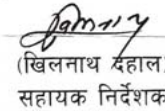 (खिलनाथ दहाल
सहायक निर्देशक